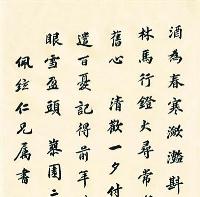 酒為春寒潋灩斟
林馬行鐙火尋常
舊心 清歡一夕付
遣百憂記得前年
眼雪盈頭 摹園二
佩紘仁兄属書